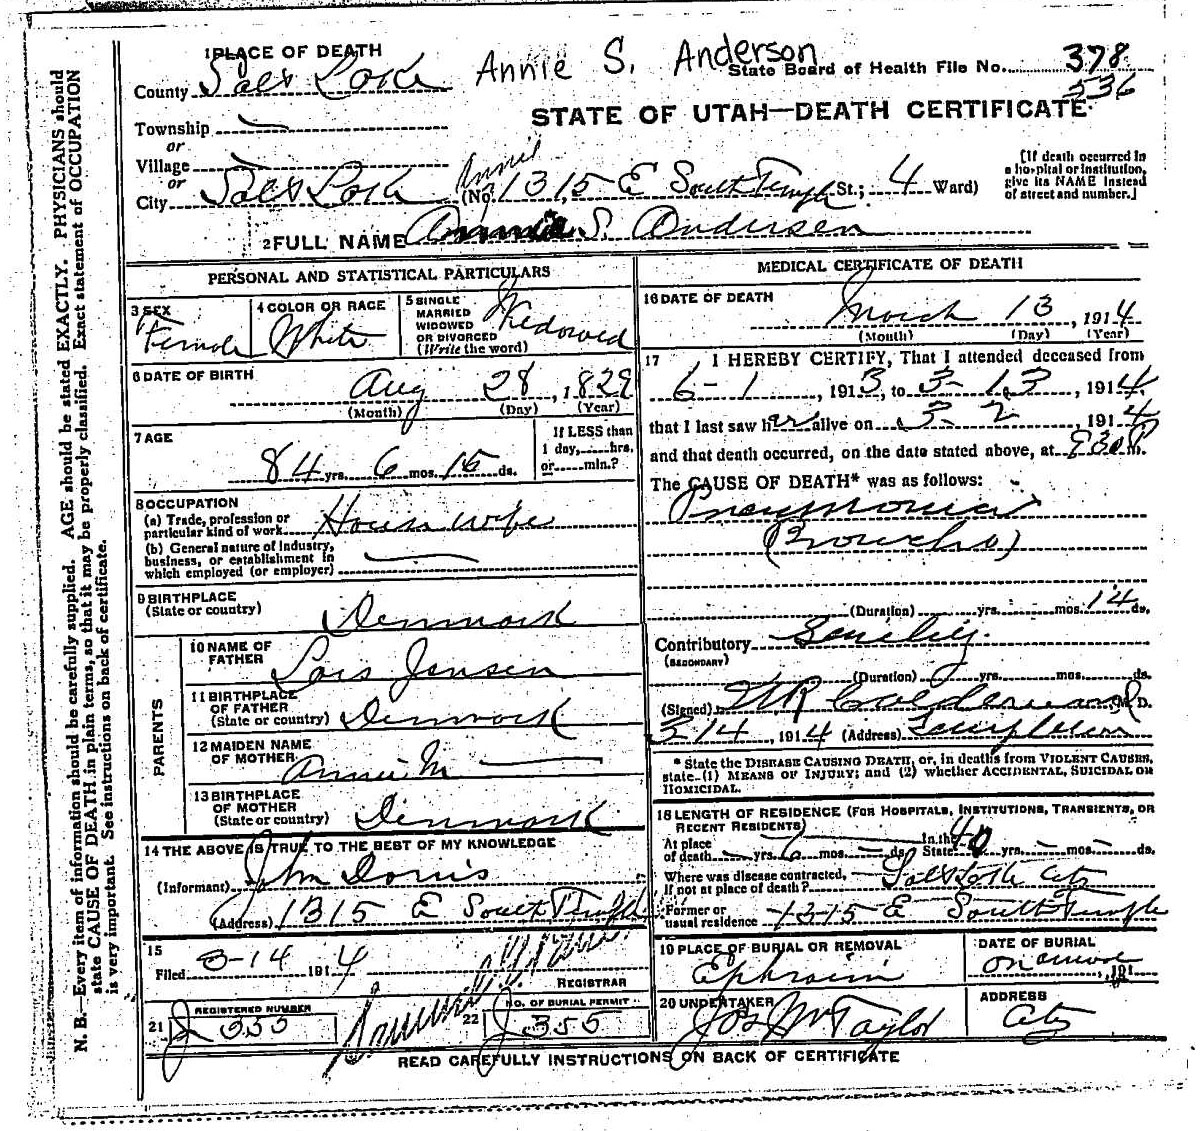 N. B.—Every item of information should be carefully supplied. AGE should be stated EXACTLY. PHYSICIANS should
state CAUSE OF DEATH in plain terms, so that it may be properly classified. Exact statement of OCCUPATION
is very important. See instructions on back of certificate.
1 PLACE OF DEATH
Annie S. Anderson
State Board of Health File No. 378
536
County Salt Lake
STATE OF UTAH—DEATH CERTIFICATE
Township
or
Village
or
City Salt Lake (No. 1315 E South Temple St.; 4 Ward)
Annie
[If death occurred in
a hospital or institution,
give its NAME instead
of street and number.]
2 FULL NAME Annie S. Andersen
PERSONAL AND STATISTICAL PARTICULARS
3 SEX
Female
4 COLOR OR RACE
White
5 SINGLE
MARRIED
WIDOWED
OR DIVORCED
(Write the word)
Widowed
6 DATE OF BIRTH
Aug 28, 1829
(Month) (Day) (Year)
7 AGE
84 yrs. 6 mos. 15 ds.
If LESS than
1 day, hrs.
or min.?
8 OCCUPATION
(a) Trade, profession or
particular kind of work Housewife
(b) General nature of industry,
business, or establishment in
which employed (or employer)
9 BIRTHPLACE
(State or country)
Denmark
PARENTS
10 NAME OF
FATHER
Lars Jensen
11 BIRTHPLACE
OF FATHER
(State or country) Denmark
12 MAIDEN NAME
OF MOTHER
Annie M
13 BIRTHPLACE
OF MOTHER
(State or country) Denmark
14 THE ABOVE IS TRUE TO THE BEST OF MY KNOWLEDGE
(Informant) John Dorius
(Address) 1315 E South Temple
15
Filed 3-14 1914
REGISTRAR
21 REGISTERED NUMBER
J 355
22 NO. OF BURIAL PERMIT
J 355
MEDICAL CERTIFICATE OF DEATH
16 DATE OF DEATH
March 13, 1914
(Month) (Day) (Year)
17 I HEREBY CERTIFY, That I attended deceased from
6-1, 1913, to 3-13, 1914,
that I last saw her alive on 3-2 1914
and that death occurred, on the date stated above, at 830 P m.
The CAUSE OF DEATH* was as follows:
Pneumonia
(Broncho)
(Duration) yrs. mos. 14 ds.
Contributory Senility
(SECONDARY)
(Duration) yrs. mos. ds.
(Signed) M. D.
3/14, 1914 (Address) Templeton
* State the DISEASE CAUSING DEATH, or, in deaths from VIOLENT CAUSES,
state (1) MEANS OF INJURY; and (2) whether ACCIDENTAL, SUICIDAL OR
HOMICIDAL.
18 LENGTH OF RESIDENCE (FOR HOSPITALS, INSTITUTIONS, TRANSIENTS, OR
RECENT RESIDENTS)
At place
of death — yrs. 6 mos. — ds. In the State 40 yrs. — mos. — ds.
Where was disease contracted,
if not at place of death? Salt Lake City
Former or
usual residence 1315 E South Temple
19 PLACE OF BURIAL OR REMOVAL
Ephraim
DATE OF BURIAL
191
20 UNDERTAKER
Jos Wm Taylor
ADDRESS
City
READ CAREFULLY INSTRUCTIONS ON BACK OF CERTIFICATE